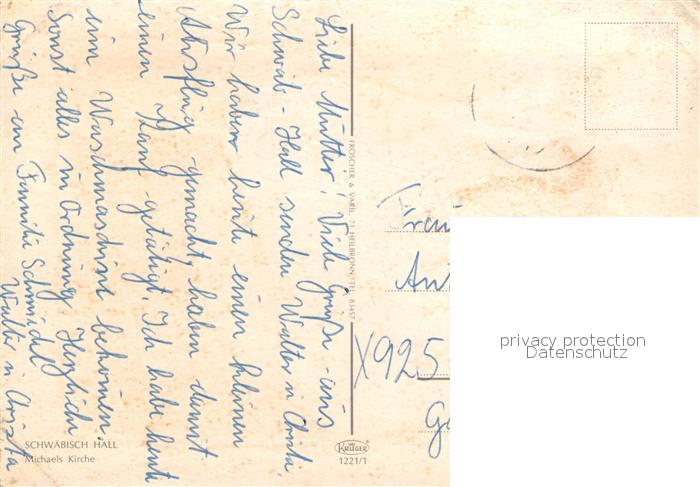 Liebe Mutter! Viele Grüße aus
Schwäb.-Hall senden Walter u. Christa.
Wir haben heute einen kleinen
Ausflug gemacht, haben damit
einen Kauf getätigt. Ich habe heute
ein Waschmaschine bekommen,
Sonst alles in Ordnung. Herzliche
Grüße an Familie Schmidt
Walter u. Christa
SCHWÄBISCH HALL
Michaels Kirche
FRÖSCHER & VARIL 71 HEILBRONN TEL. 83457
KRÜGER
1221/1
Frau
X925
privacy protection
Datenschutz